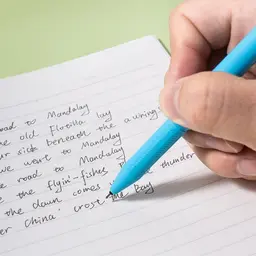 oad to Mandalay
he old Flotilla lay
ur side beneath the awning
we went to Mandalay
e road to Mandalay
e the flyin'-fishes
the dawn comes thunder
er China' crost the Bay